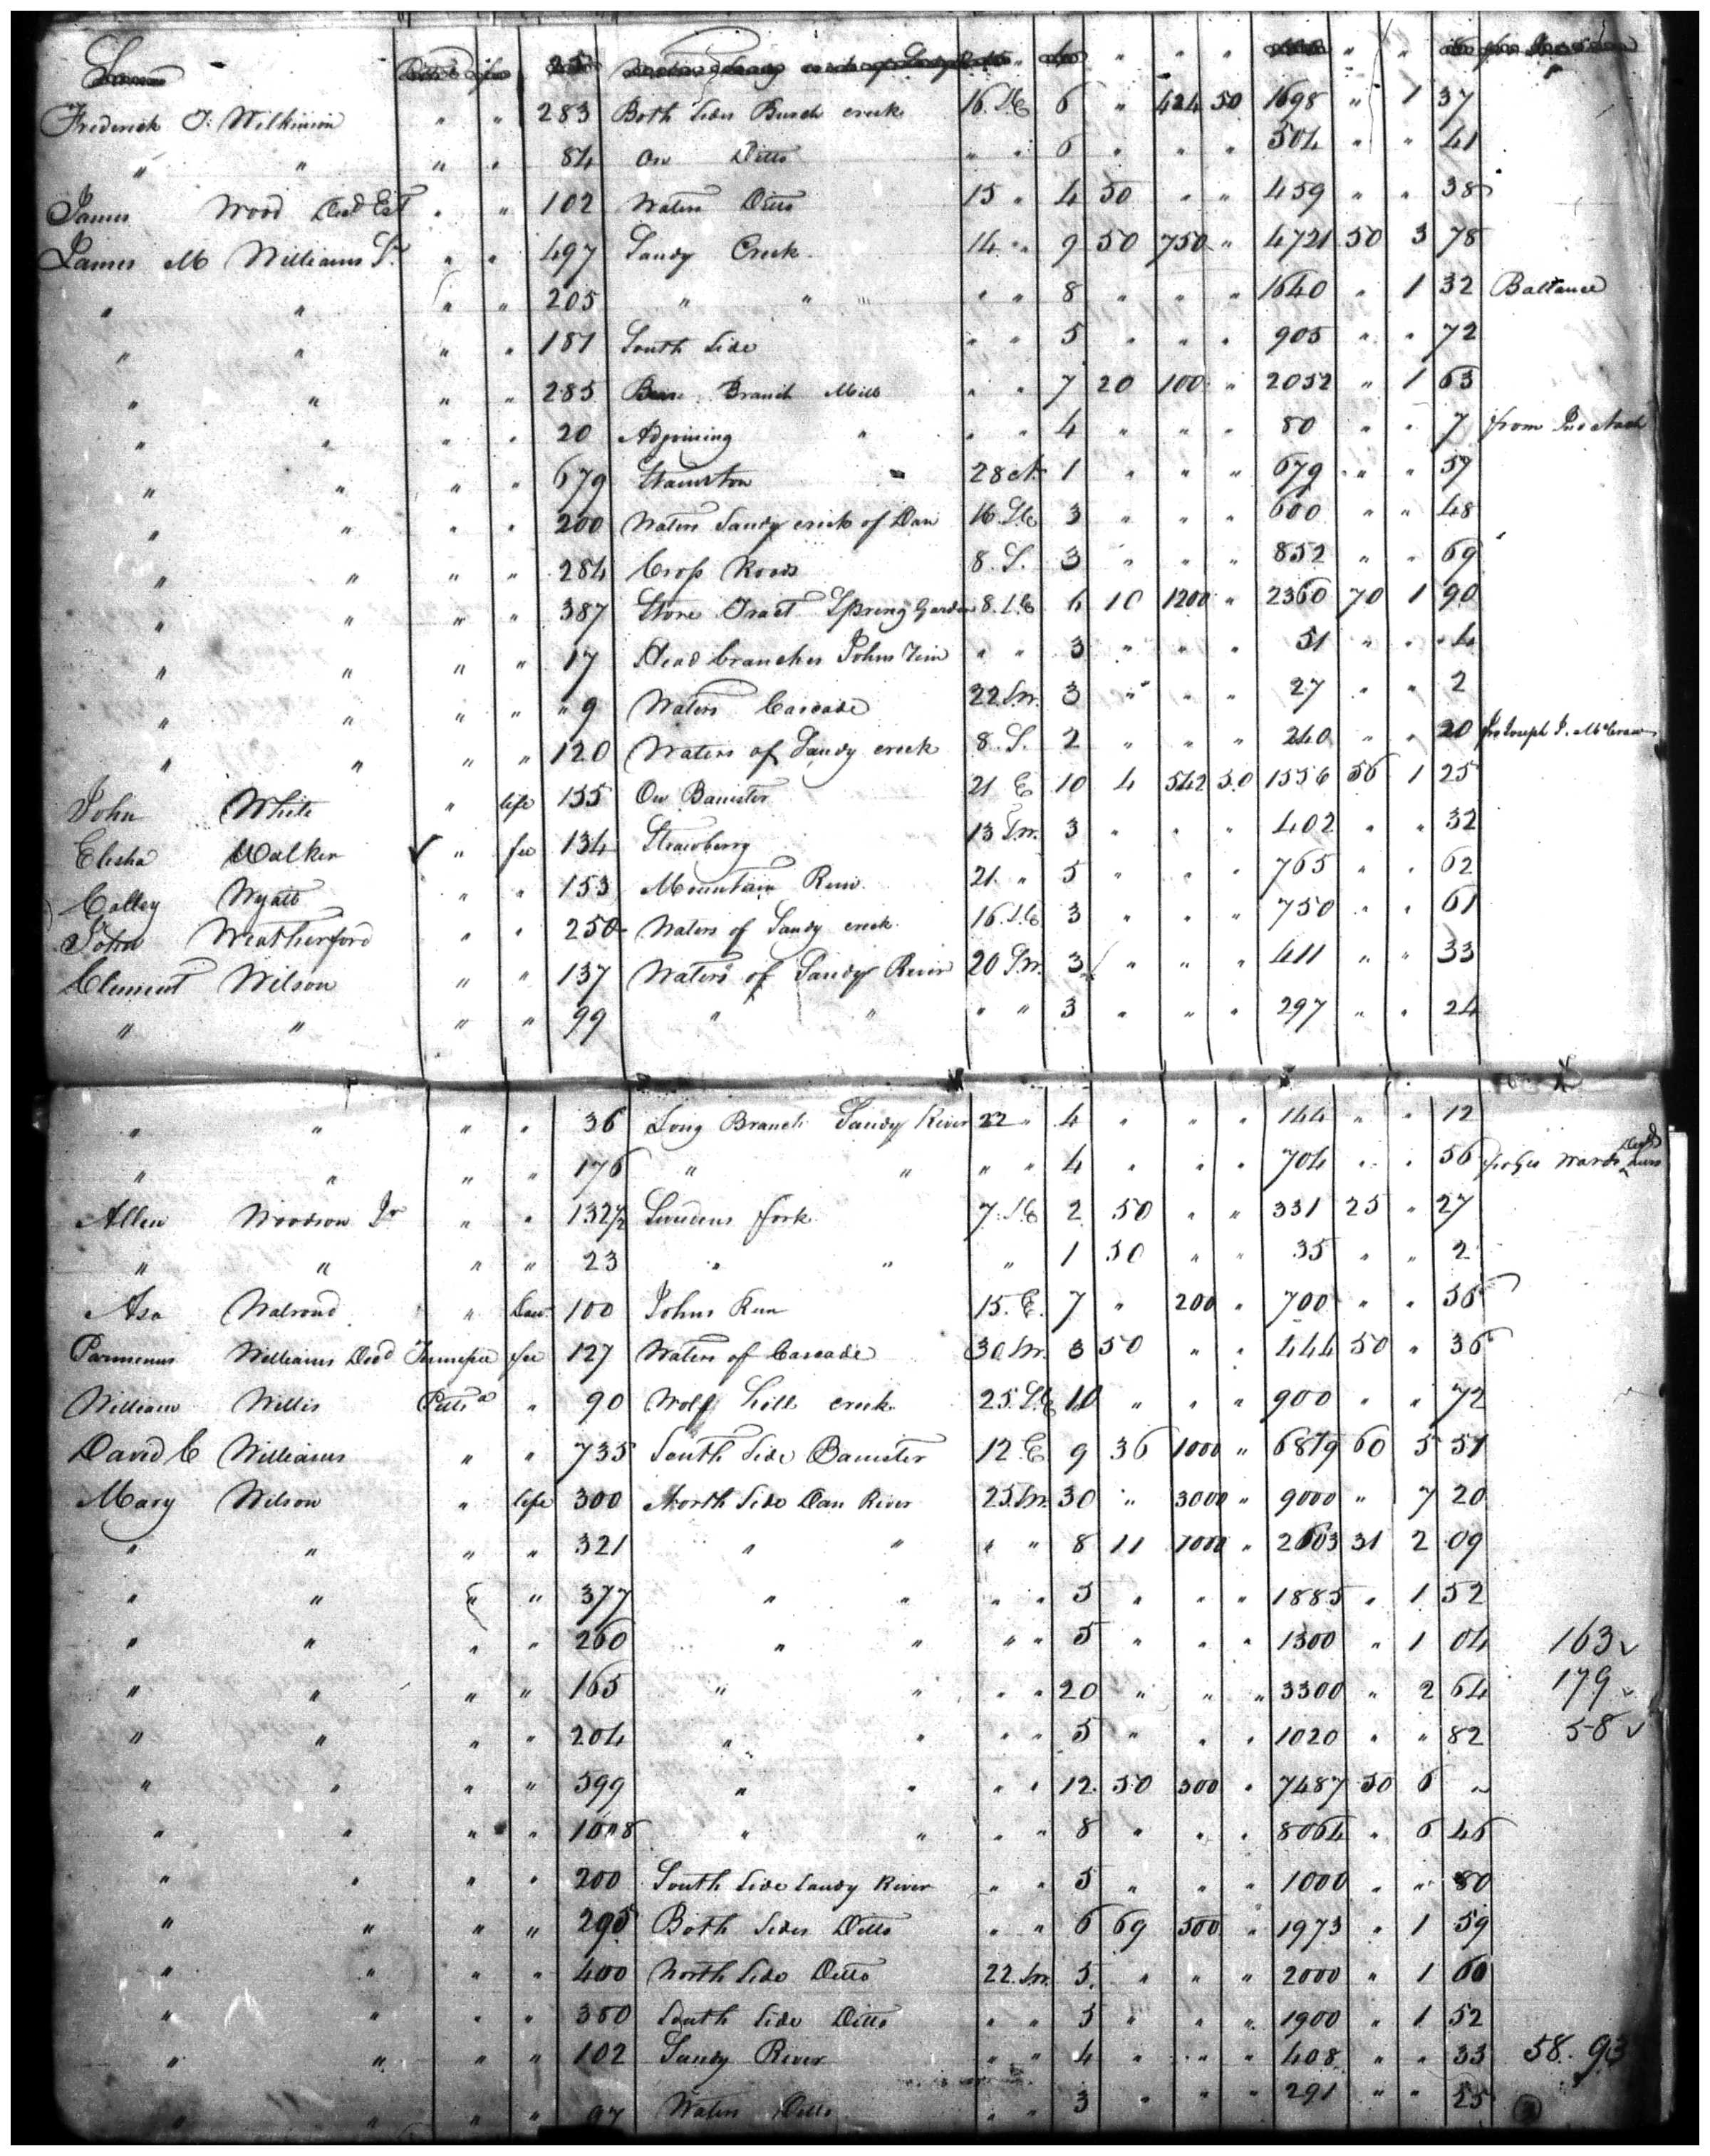 Frederick J. Wilkinson " " 283 Both Sides Bush creek 16. S.E 6 " 424 50 1698 " 1 37
" " " " 84 On Ditto " " 6 " " " 504 " " 41
James Wood Decd Est " " 102 Waters Ditto 15 " 4 50 " " 459 " " 38
James M Williams Sr. " " 497 Sandy Creek 14 " 9 50 750 " 4721 50 3 78
" " " " 205 " " " " 8 " " " 1640 " 1 32
" " " " 181 South Side " " 5 " " " 905 " " 72
" " " " 285 Branch Mill " " 7 20 100 " 2052 " 1 63
" " " " 20 Adjoining " " " 4 " " " 80 " " 7 from
" " " " 679 28 N. 1 " " " 679 " " 57
" " " " 200 Waters Sandy creek of Dan 16. S.E 3 " " " 600 " " 48
" " " " 284 Cross Roads 8. S. 3 " " " 852 " " 69
" " " " 387 Store Tract Spring Garden 8. S.E 6 10 1200 " 2360 70 1 90
" " " " 17 Head branches Johns " " 3 " " " 51 " " 4
" " " " " 9 Waters Cascade 22. S.W. 3 " " " 27 " " 2
" " " " 120 Waters of Sandy creek 8. S. 2 " " " 240 " " 20 Joseph J. McCraw
John White " life 155 On Banister 21 E 10 4 542 50 1556 56 1 25
Elisha Walker ✓ " fee 134 Strawberry 13 S.W. 3 " " " 402 " " 32
Colley Wyatt " " 153 Mountain Run 21. " 5 " " " 765 " " 62
John Weatherford " " 250 Waters of Sandy creek 16. S.E 3 " " " 750 " " 61
Clement Wilson " " 137 Waters of Sandy River 20 S.W. 3 " " " 411 " " 33
" " " " 99 " " " " 3 " " " 297 " " 24
" " " " 36 Long Branch Sandy River 22 " 4 " " " 144 " " 12
" " " " 176 " " " " 4 " " " 704 " " 56 Wards Decd
Allen Woodson Jr " " 132 1/2 fork 7. S.E 2 50 " " 331 25 " 27
" " " " 23 " " " 1 50 " " 35 " " 2
Asa Walrond " 100 Johns Run 15. E. 7 " 200 " 700 " " 56
Parmenus Williams Decd Tennessee fee 127 Waters of Cascade 30 S.W. 3 50 " " 444 50 " 36
William Willis Pittsa " 90 Wolf hill creek 25. S.E 10 " " " 900 " " 72
David C Williams " " 735 South Side Banister 12. E 9 36 1000 " 6879 60 5 51
Mary Wilson " life 300 North Side Dan River 25. S.W. 30 " 3000 " 9000 " 7 20
" " " " 321 " " " " 8 11 1000 " 2603 31 2 09
" " " " 377 " " " " 5 " " " 1885 " 1 52
" " " " 260 " " " " 5 " " " 1300 " 1 04 163 ✓
" " " " 165 " " " " 20 " " " 3300 " 2 64 179 ✓
" " " " 204 " " " " 5 " " " 1020 " " 82 58 ✓
" " " " 599 " " " " 12. 50 300 " 7487 50 6 ~
" " " " 1008 " " " " 8 " " " 8064 " 6 46
" " " " 200 South Side Sandy River " " 5 " " " 1000 " " 80
" " " " 295 Both Sides Ditto " " 6 69 500 " 1973 " 1 59
" " " " 400 North Side Ditto 22. S.W. 5. " " " 2000 " 1 60
" " " " 380 South Side Ditto " " 5 " " " 1900 " 1 52
" " " " 102 Sandy River " " 4 " " " 408 " " 33 58. 93
" " " " 97 Waters Ditto " " 3 " " " 291 " "